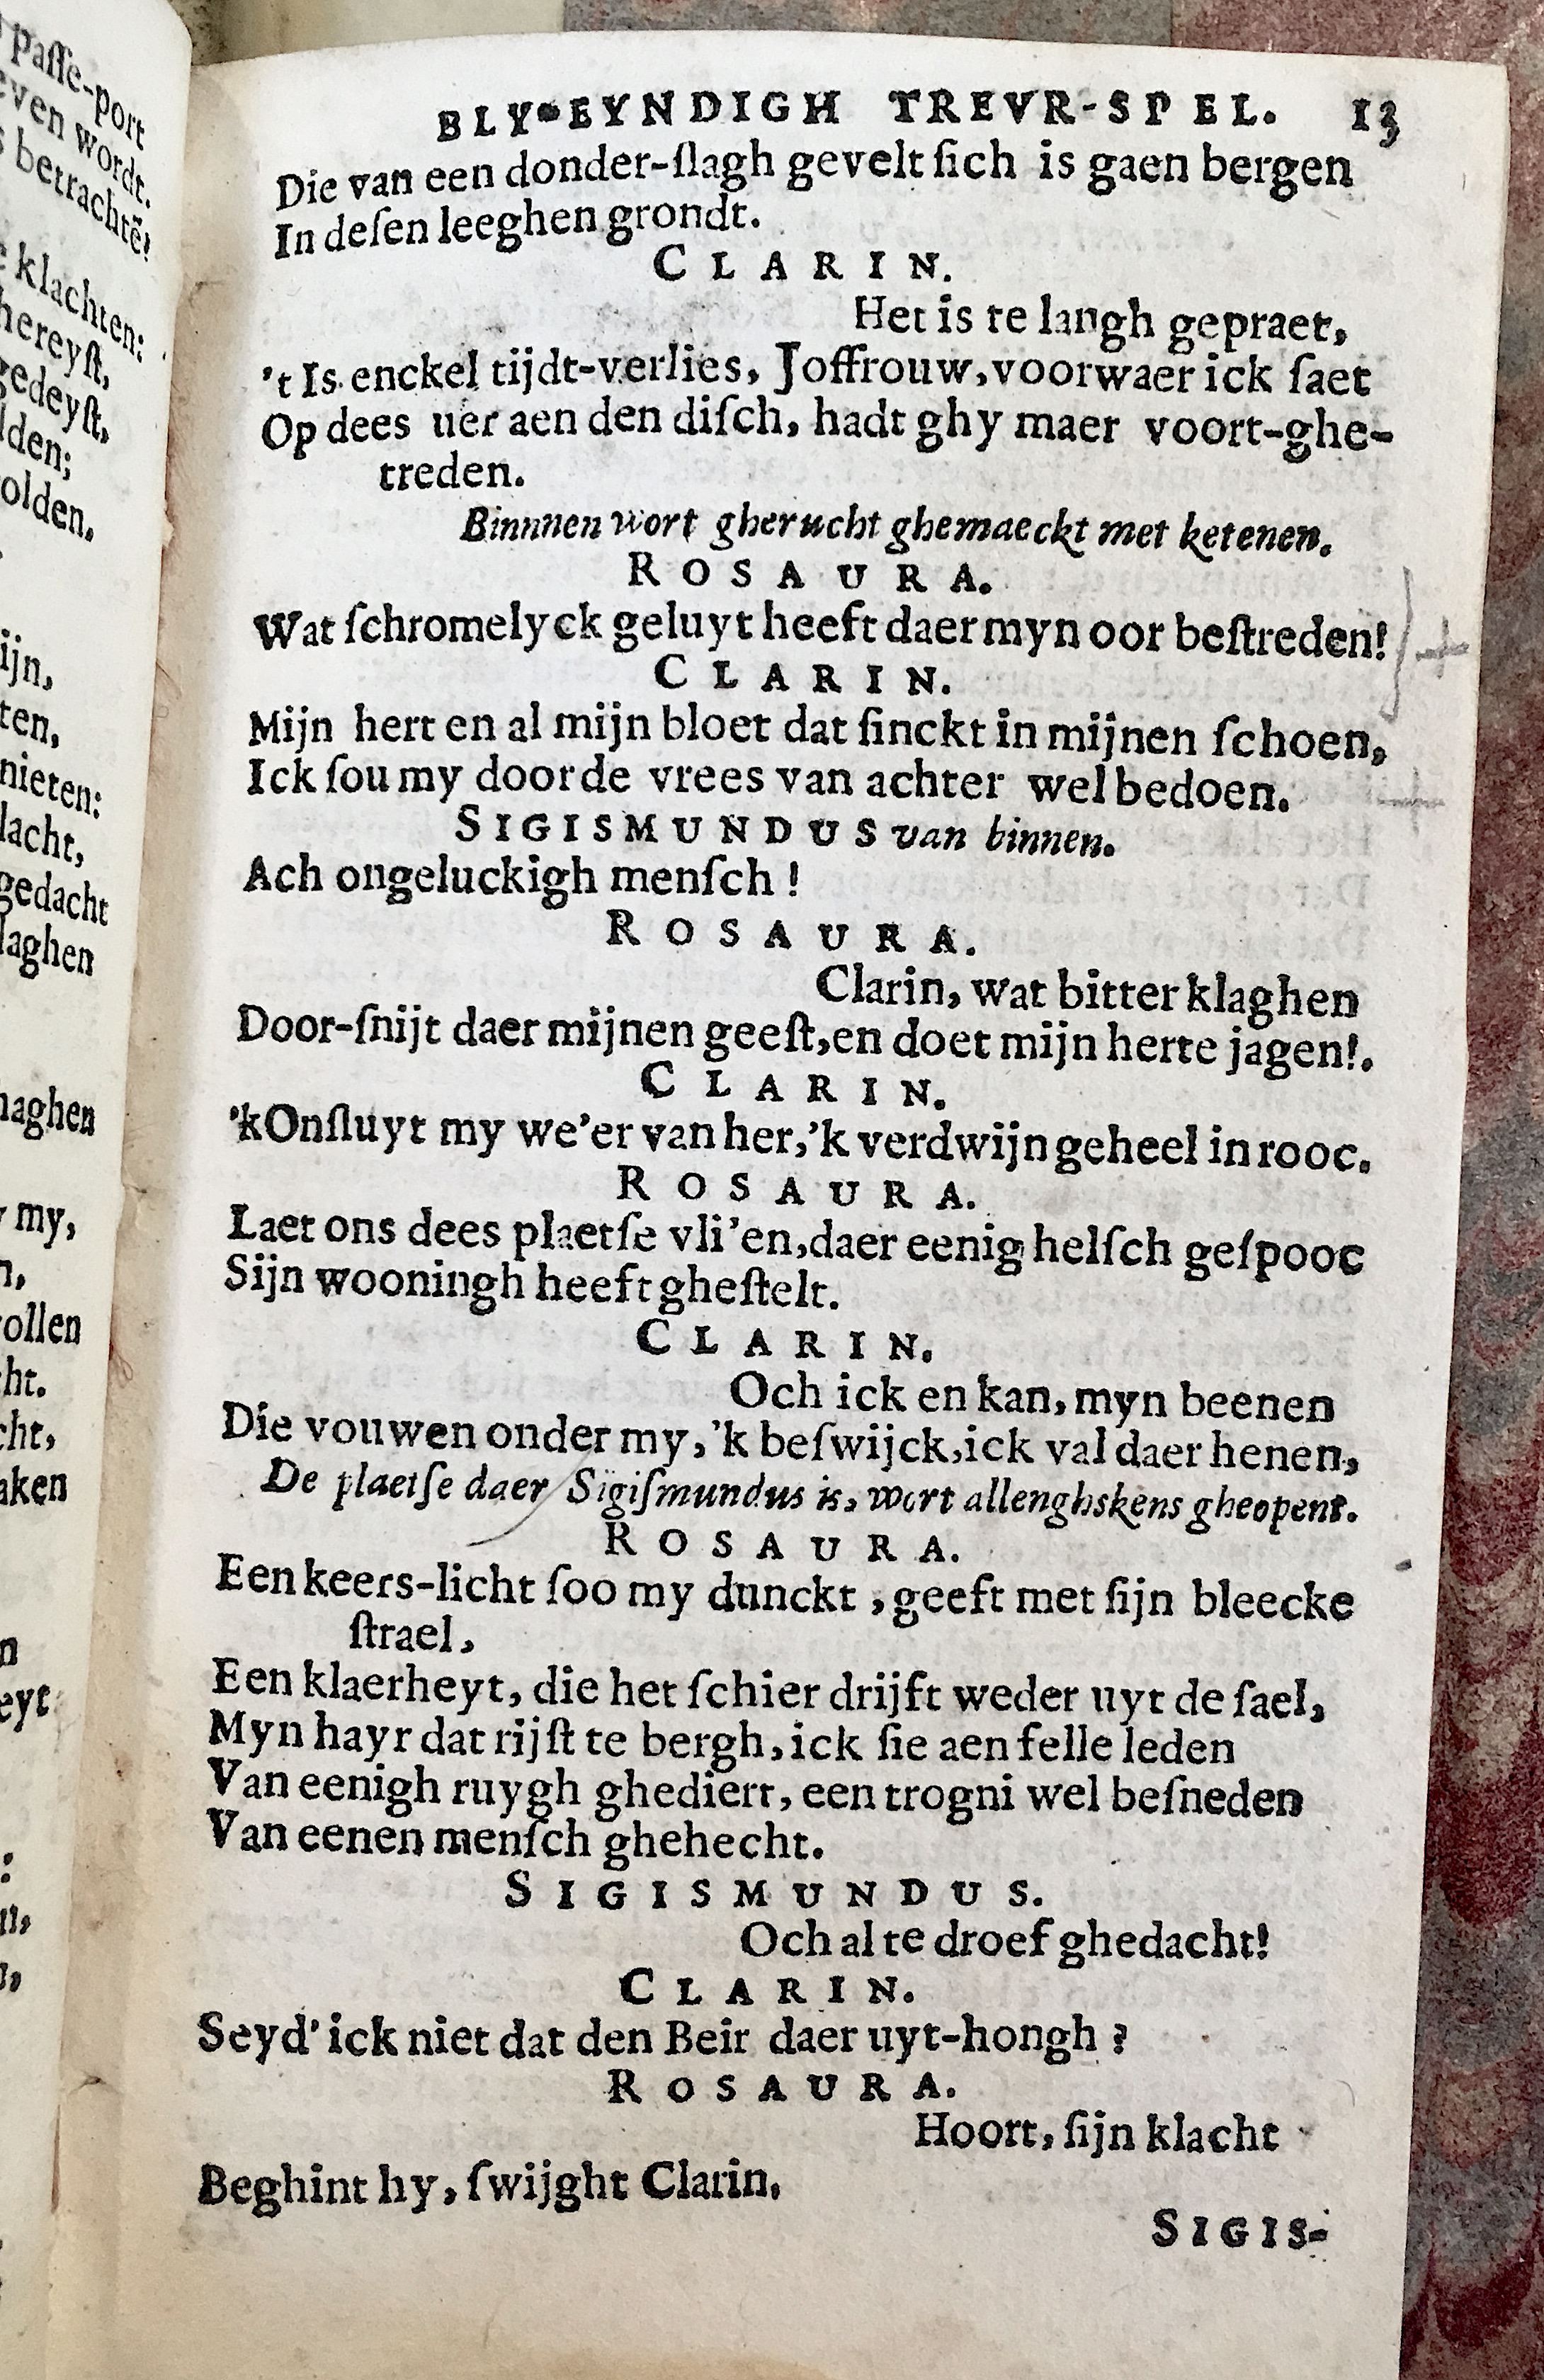 paſſe-port
even wordt.
betrachtẽ!
klachten:
hereyſt,
gedeyſt,
lden;
olden.
ijn,
ten,
nieten:
lacht,
gedacht
laghen
naghen
my,
n,
ollen
ht.
cht,
aken
n
eyt
:
n,
BLY-EYNDIGH TREVR-SPEL. 13
Die van een donder-ſlagh gevelt ſich is gaen bergen
In deſen leeghen grondt.
CLARIN.
Het is te langh gepraet,
't Is enckel tijdt-verlies, Joffrouw, voorwaer ick ſaet
Op dees uer aen den diſch, hadt ghy maer voort-ghe-
treden.
Binnnen wort gherucht ghemaeckt met ketenen.
ROSAURA.
Wat ſchromelyck geluyt heeft daer myn oor beſtreden!
CLARIN.
Mijn hert en al mijn bloet dat ſinckt in mijnen ſchoen,
Ick ſou my door de vrees van achter wel bedoen.
SIGISMUNDUS van binnen.
Ach ongeluckigh menſch !
ROSAURA.
Clarin, wat bitter klaghen
Door-ſnijt daer mijnen geeſt, en doet mijn herte jagen!.
CLARIN.
'kOnſluyt my we'er van her, 'k verdwijn geheel in rooc.
ROSAURA.
Laet ons dees plaetſe vli'en, daer eenig helſch geſpooc
Sijn wooningh heeft gheſtelt.
CLARIN.
Och ick en kan, myn beenen
Die vouwen onder my, 'k beſwijck, ick val daer henen,
De plaetſe daer Sigiſmundus is, wort allenghskens gheopent.
ROSAURA.
Een keers-licht ſoo my dunckt , geeft met ſijn bleecke
ſtrael,
Een klaerheyt, die het ſchier drijft weder uyt de ſael,
Myn hayr dat rijſt te bergh, ick ſie aen felle leden
Van eenigh ruygh ghediert, een trogni wel beſneden
Van eenen menſch ghehecht.
SIGISMUNDUS.
Och al te droef ghedacht!
CLARIN.
Seyd' ick niet dat den Beir daer uyt-hongh ?
ROSAURA.
Hoort, ſijn klacht
Beghint hy, ſwijght Clarin.
SIGIS-